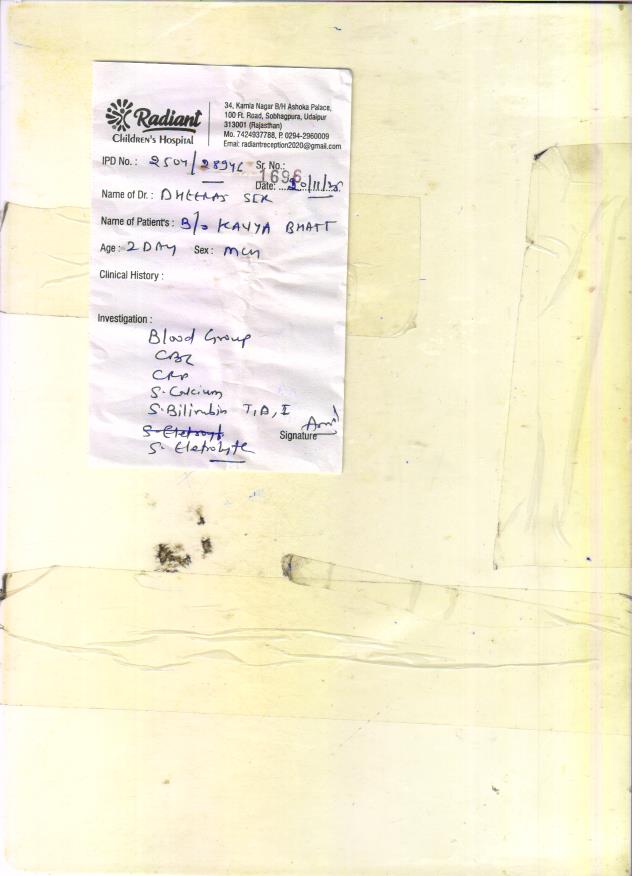 Radiant
CHILDREN'S HOSPITAL
34, Kamla Nagar B/H Ashoka Palace,
100 Ft. Road, Sobhagpura, Udaipur
313001 (Rajasthan)
Mo. 7424937788, P. 0294-2960009
Emai: radiantreception2020@gmail.com
IPD No.: 2504/28946 Sr. No.: 1696
Date: 30/11/25
Name of Dr.: DHEERAJ SIR
Name of Patient's: B/o KAVYA BHATT
Age: 2 DAY Sex: MCH
Clinical History:
Investigation:
Blood Group
CBC
CRP
S. Calcium
S. Bilirubin T, D, I
S. Eletroyt
Signature
S. Eletrolyte